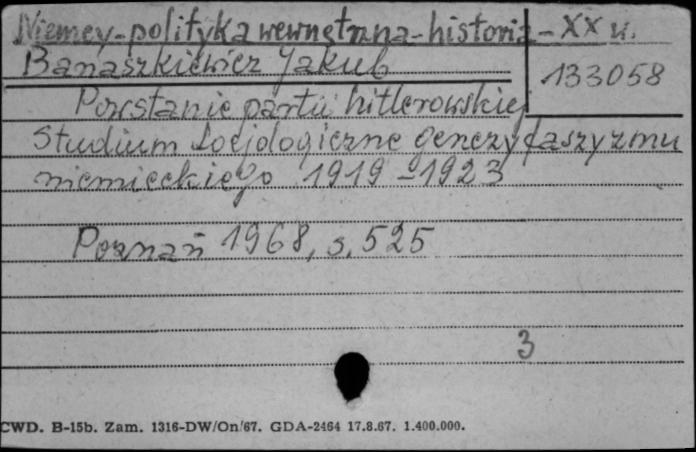 Niemcy-polityka wewnętrzna-historia-XX w.
Banaszkiewicz Jakub
133058
Powstanie partii hitlerowskiej
Studium socjologiczne genezy faszyzmu
niemieckiego 1919-1923
Poznań 1968, s. 525
3
CWD. B-15b. Zam. 1316-DW/On/67. GDA-2464 17.8.67. 1.400.000.